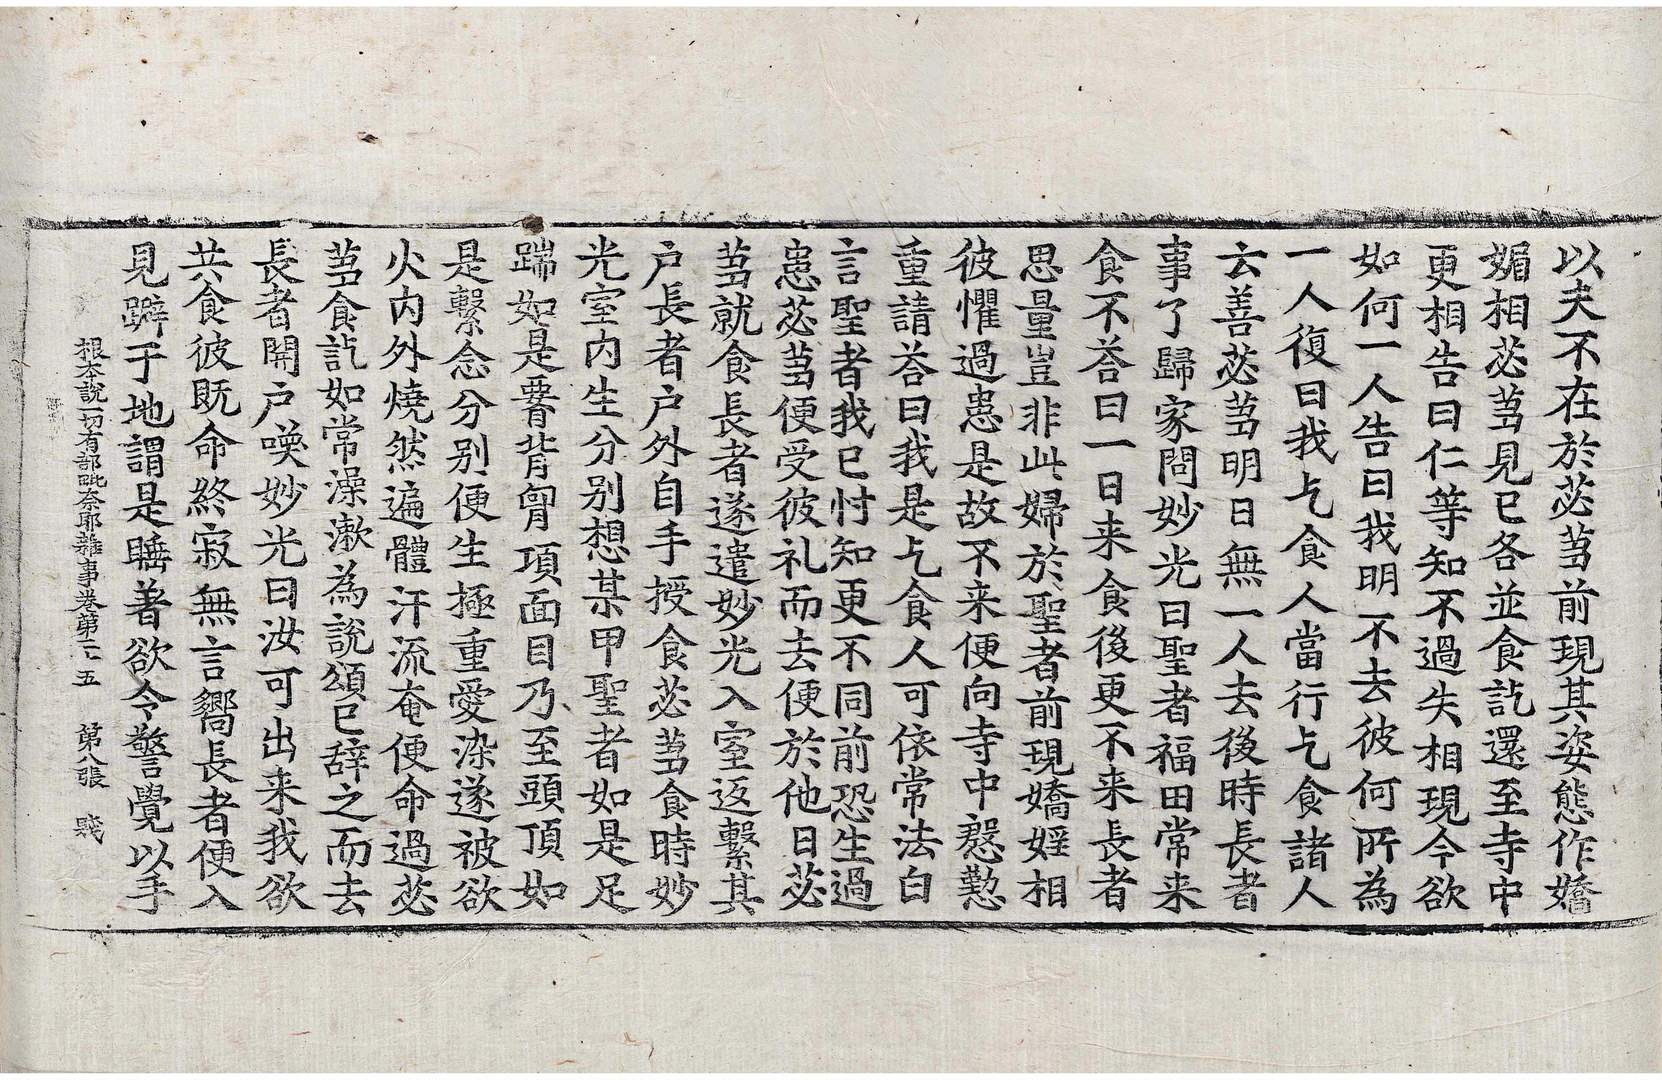 以夫不在於苾芻前現其姿態作嬌
媚相苾芻見已各並食訖還至寺中
更相告曰仁等知不過失相現今欲
如何一人告曰我明不去彼何所為
一人復曰我乞食人當行乞食諸人
云善苾芻明日無一人去後時長者
事了歸家問妙光曰聖者福田常来
食不荅曰一日来食後更不来長者
思量豈非此婦於聖者前現嬌婬相
彼懼過患是故不来便向寺中慇懃
重請荅曰我是乞食人可依常法白
言聖者我已忖知更不同前恐生過
患苾芻便受彼礼而去便於他日苾
芻就食長者遂遣妙光入室返繫其
户長者户外自手授食苾芻食時妙
光室内生分别想某甲聖者如是足
踹如是𦝫背胷項面目乃至頭頂如
是繫念分别便生極重愛染遂被欲
火内外燒然遍體汗流奄便命過苾
芻食訖如常澡漱為說頌已辝之而去
長者開户喚妙光曰汝可出来我欲
共食彼既命終寂無言嚮長者便入
見躃于地謂是睡著欲令警覺以手
根本說一切有部毗奈耶雜事卷第二十五 第八張 賤